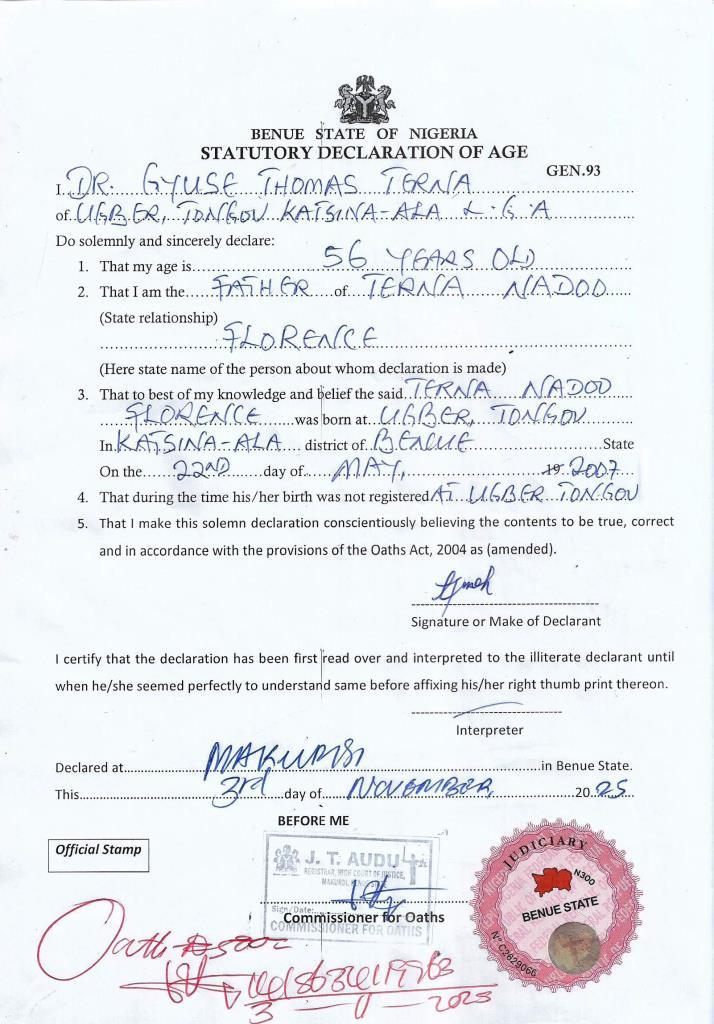 BENUE STATE OF NIGERIA
STATUTORY DECLARATION OF AGE
GEN.93
I. DR. GYUSE THOMAS TERNA
of UGBER, TONGOV KATSINA-ALA L.G.A
Do solemnly and sincerely declare:
1. That my age is 56 YEARS OLD
2. That I am the FATHER of TERNA NADOO
(State relationship)
FLORENCE
(Here state name of the person about whom declaration is made)
3. That to best of my knowledge and belief the said TERNA NADOO
FLORENCE was born at UGBER, TONGOV
In KATSINA-ALA district of BENUE State
On the 22ND day of MAY, 19 2007
4. That during the time his/her birth was not registered AT UGBER TONGOV
5. That I make this solemn declaration conscientiously believing the contents to be true, correct
and in accordance with the provisions of the Oaths Act, 2004 as (amended).
Signature or Make of Declarant
I certify that the declaration has been first read over and interpreted to the illiterate declarant until
when he/she seemed perfectly to understand same before affixing his/her right thumb print thereon.
Interpreter
Declared at MAKURDI in Benue State.
This 3rd day of NOVEMBER 20 25
BEFORE ME
Official Stamp
J. T. AUDU
REGISTRAR, HIGH COURT OF JUSTICE,
MAKURDI, BENUE STATE
Sign/Date:
Commissioner for Oaths
COMMISSIONER FOR OATHS
JUDICIARY
N300
BENUE STATE
Nº C2629066
Oath
2025